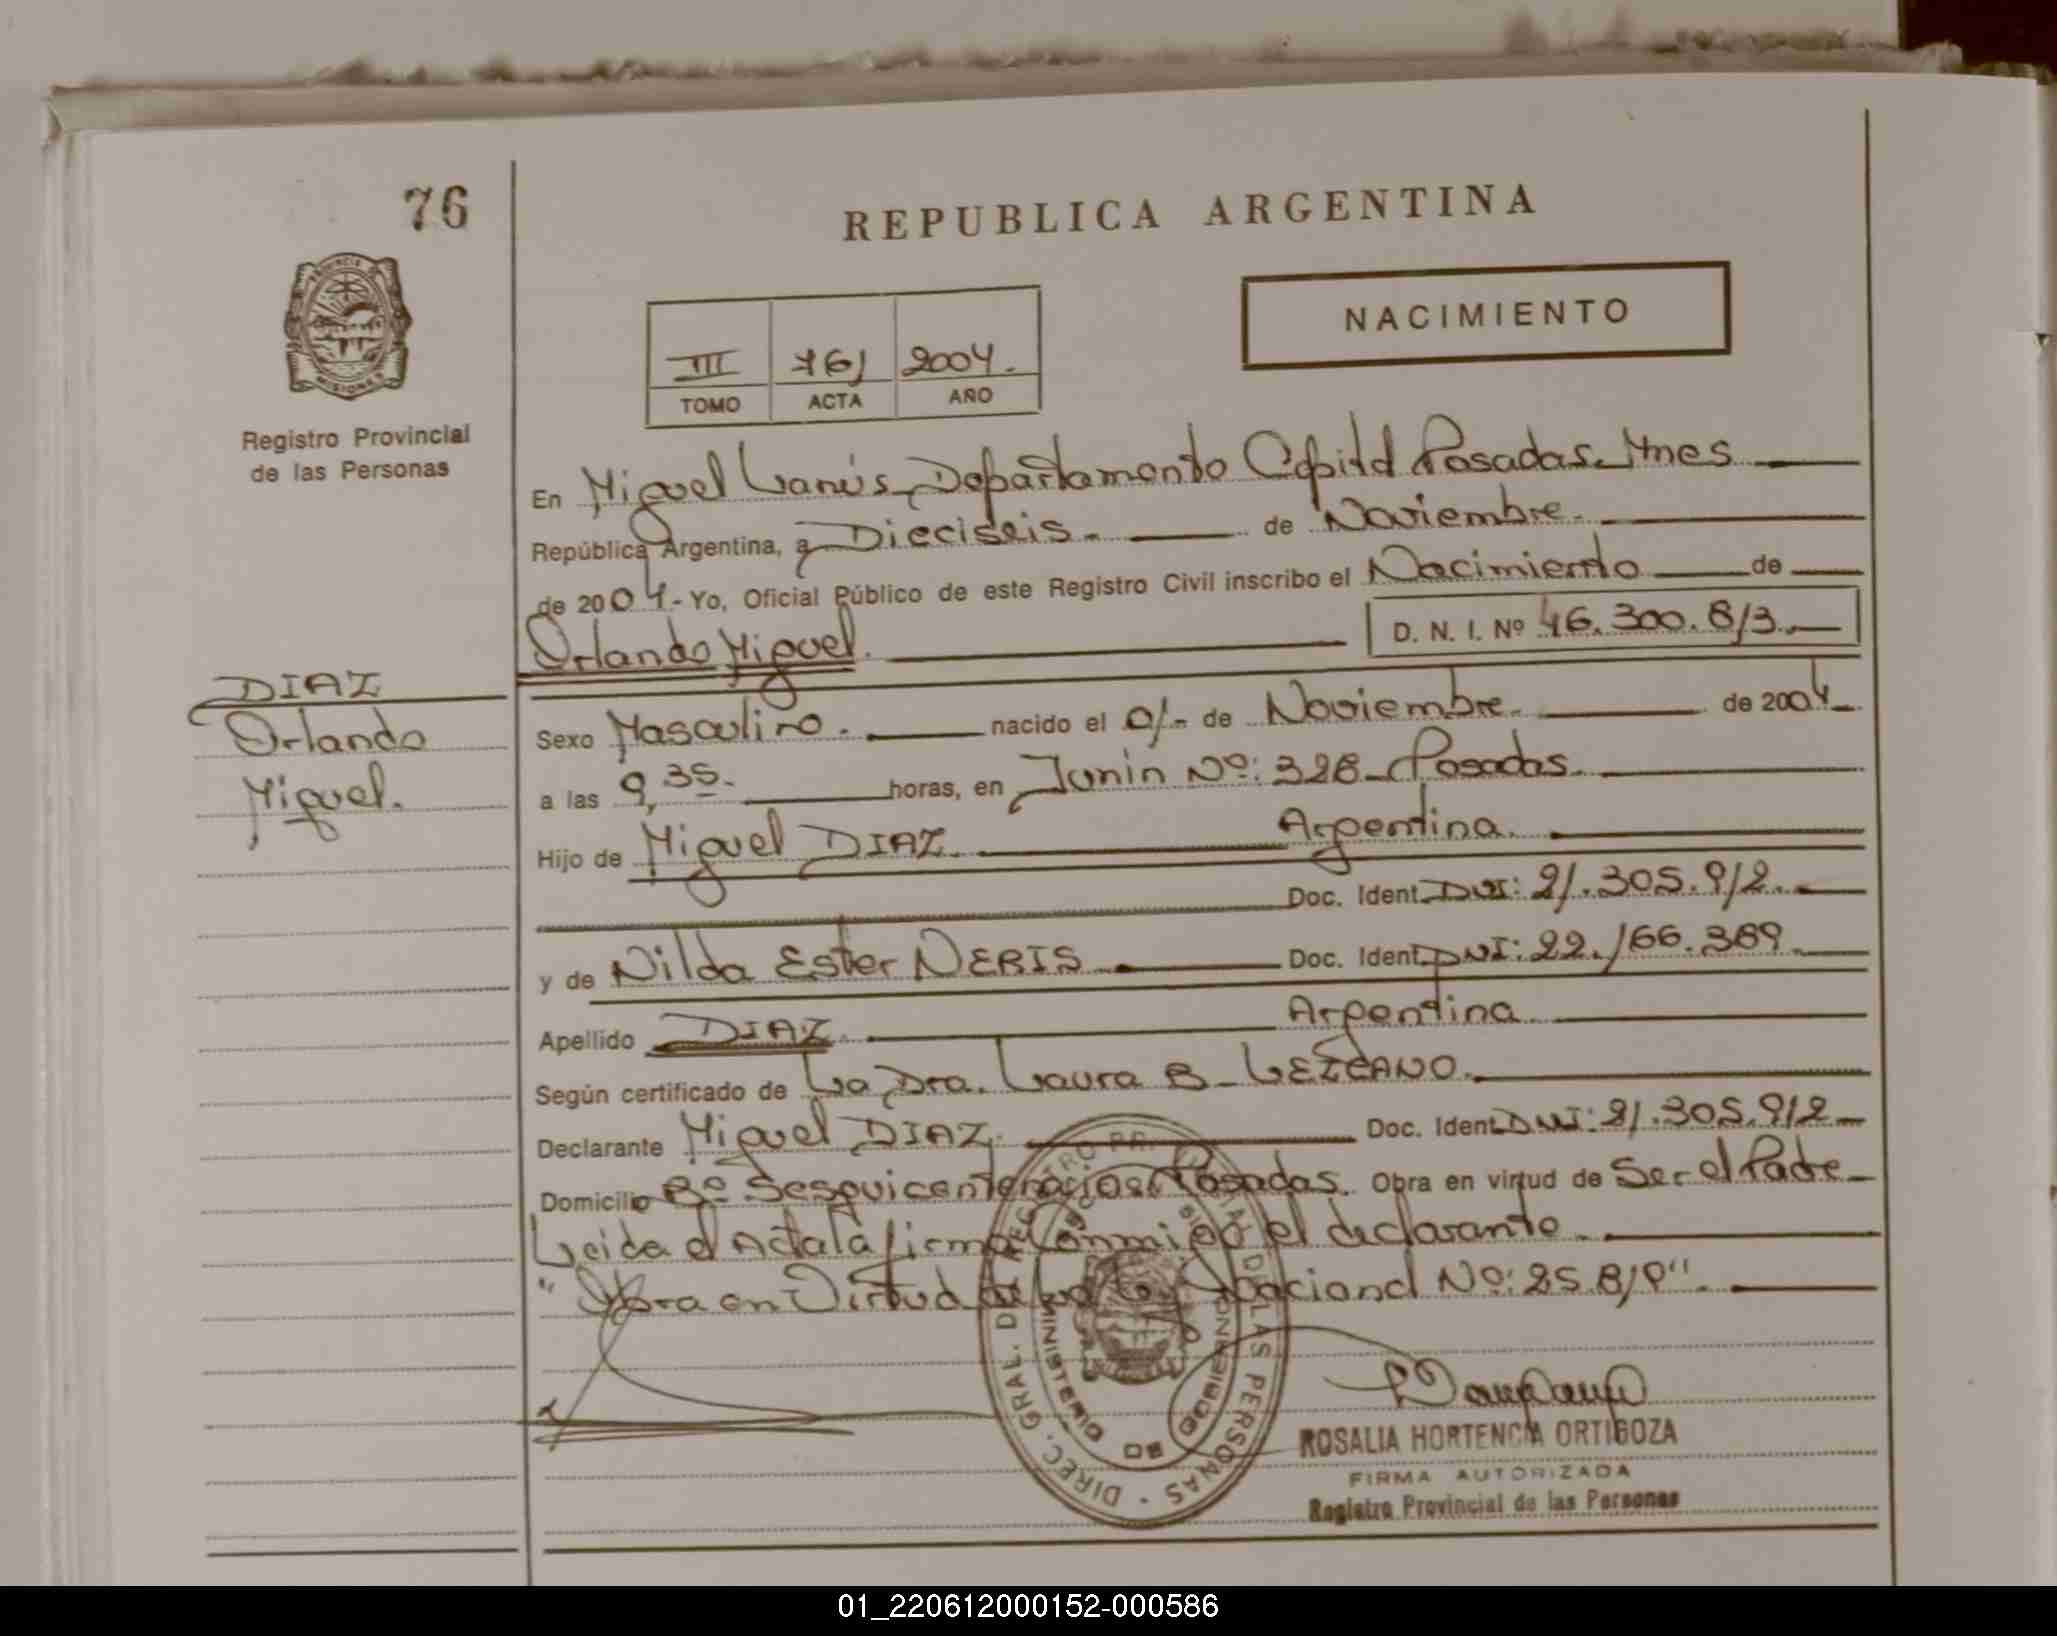 76
REPUBLICA ARGENTINA
NACIMIENTO
III 761 2004.
TOMO ACTA AÑO
PROVINCIA DE
MISIONES
Registro Provincial
de las Personas
En Miguel Lanús, Departamento Capital Posadas Mnes
República Argentina, a Dieciseis. de Noviembre.
de 2004.- Yo, Oficial Público de este Registro Civil inscribo el Nacimiento de
Orlando Miguel. D. N. I. Nº 46.300.813.
DIAZ
Orlando
Miguel.
Sexo Masculino. nacido el 01- de Noviembre. de 2004.
a las 9,35. horas, en Junin Nº: 328 - Posadas.
Hijo de Miguel DIAZ. Argentina.
Doc. Ident. DNI: 21.305.912.
y de Nilda Ester NERIS. Doc. Ident. DNI: 22.166.389.
Apellido DIAZ. Argentina
Según certificado de La Dra. Laura B. LEZCANO.
Declarante Miguel DIAZ. Doc. Ident. DNI: 21.305.912
Domicilio Bº Sesquicentenario Posadas. Obra en virtud de Ser el Padre
Leida el Acta la firma Conmigo el declarante.
"Obra en Virtud de la Ley Nacional Nº: 25.819".
DIREC. GRAL. DE REGISTRO PROVINCIAL DE LAS PERSONAS
MINISTERIO DE GOBIERNO
ROSALIA HORTENCIA ORTIGOZA
FIRMA AUTORIZADA
Registro Provincial de las Personas
01_220612000152-000586